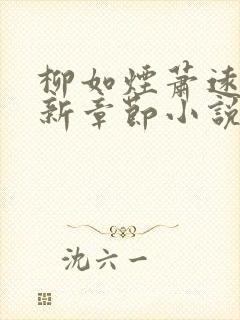 柳如煙蕭遠
新章節小説
沈六一